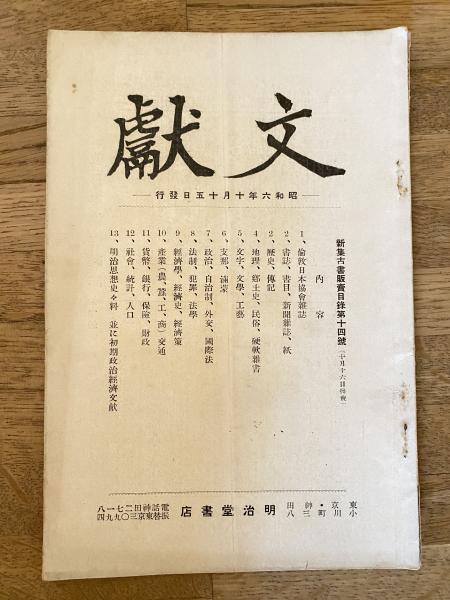 文獻
昭和六年十月十五日發行
新集古書販賣目錄第十四號(十月十六日發賣)
內容
1、倫敦日本協會雜誌
2、書誌、書目、新聞雜誌、紙
2、歷史、傳記
4、地理、鄕土史、民俗、硬軟雜書
5、文字、文學、工藝
6、支那、滿蒙
7、政治、自治制、外交、國際法
8、法制、犯罪、法學
9、經濟學、經濟史、經濟策
10、產業(農、蠶、工、商)交通
11、貨幣、銀行、保險、財政
12、社會、統計、人口
13、明治思想史々料 並に初期政治經濟文獻
東京・神田
小川町三八
明治堂書店
電話神田二七一八
振替東京三〇九九四